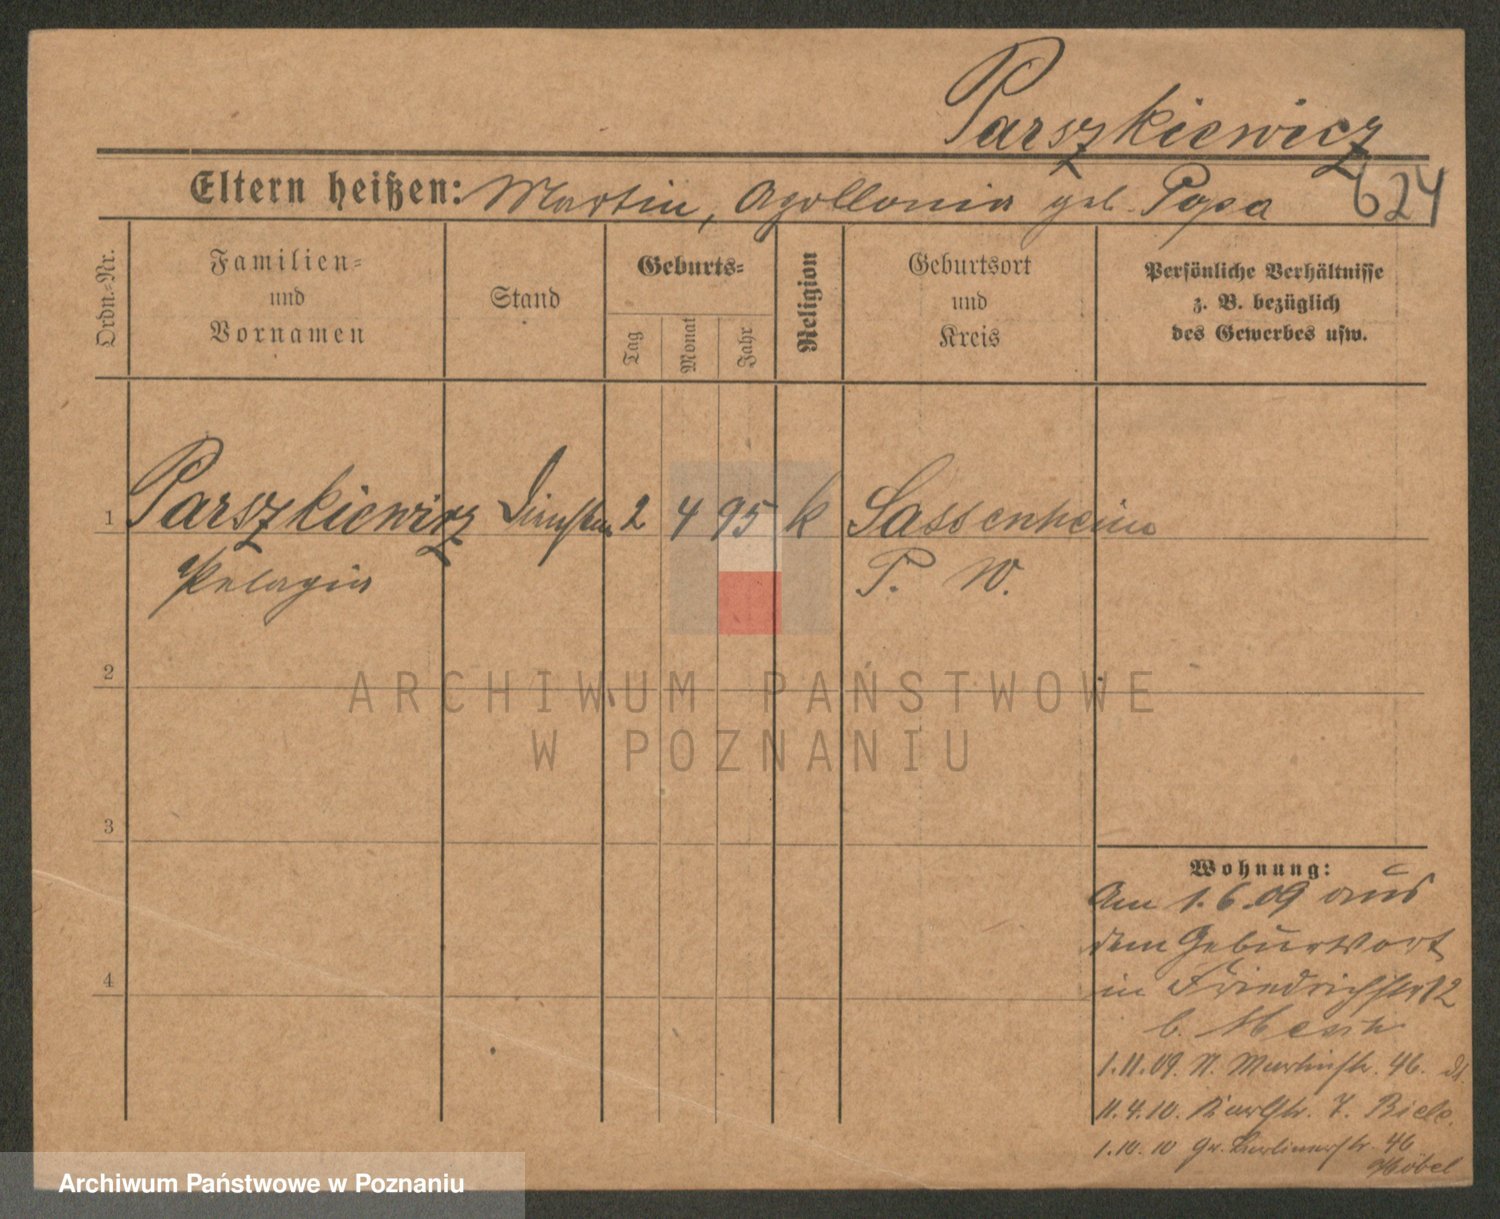 Parszkiewicz
624
Eltern heißen: Martin, Apollonia geb. Popa
Ordn.-Nr.
Familien-
und
Vornamen
Stand
Geburts-
Tag
Monat
Jahr
Religion
Geburtsort
und
Kreis
Persönliche Verhältnisse
z. B. bezüglich
des Gewerbes usw.
1 Parszkiewicz 2 4 95 k Sassenheim
Pelagia P. W.
2
ARCHIWUM PAŃSTWOWE
W POZNANIU
3
4
Wohnung:
Am 1.6.09 aus
dem Geburtsort
in Friedrichstr 12
b.
1.11.09. N. Martinstr. 46.
11.4.10. Karlstr. 7.
1.10.10 Gr. Berlinerstr. 46
Archiwum Państwowe w Poznaniu